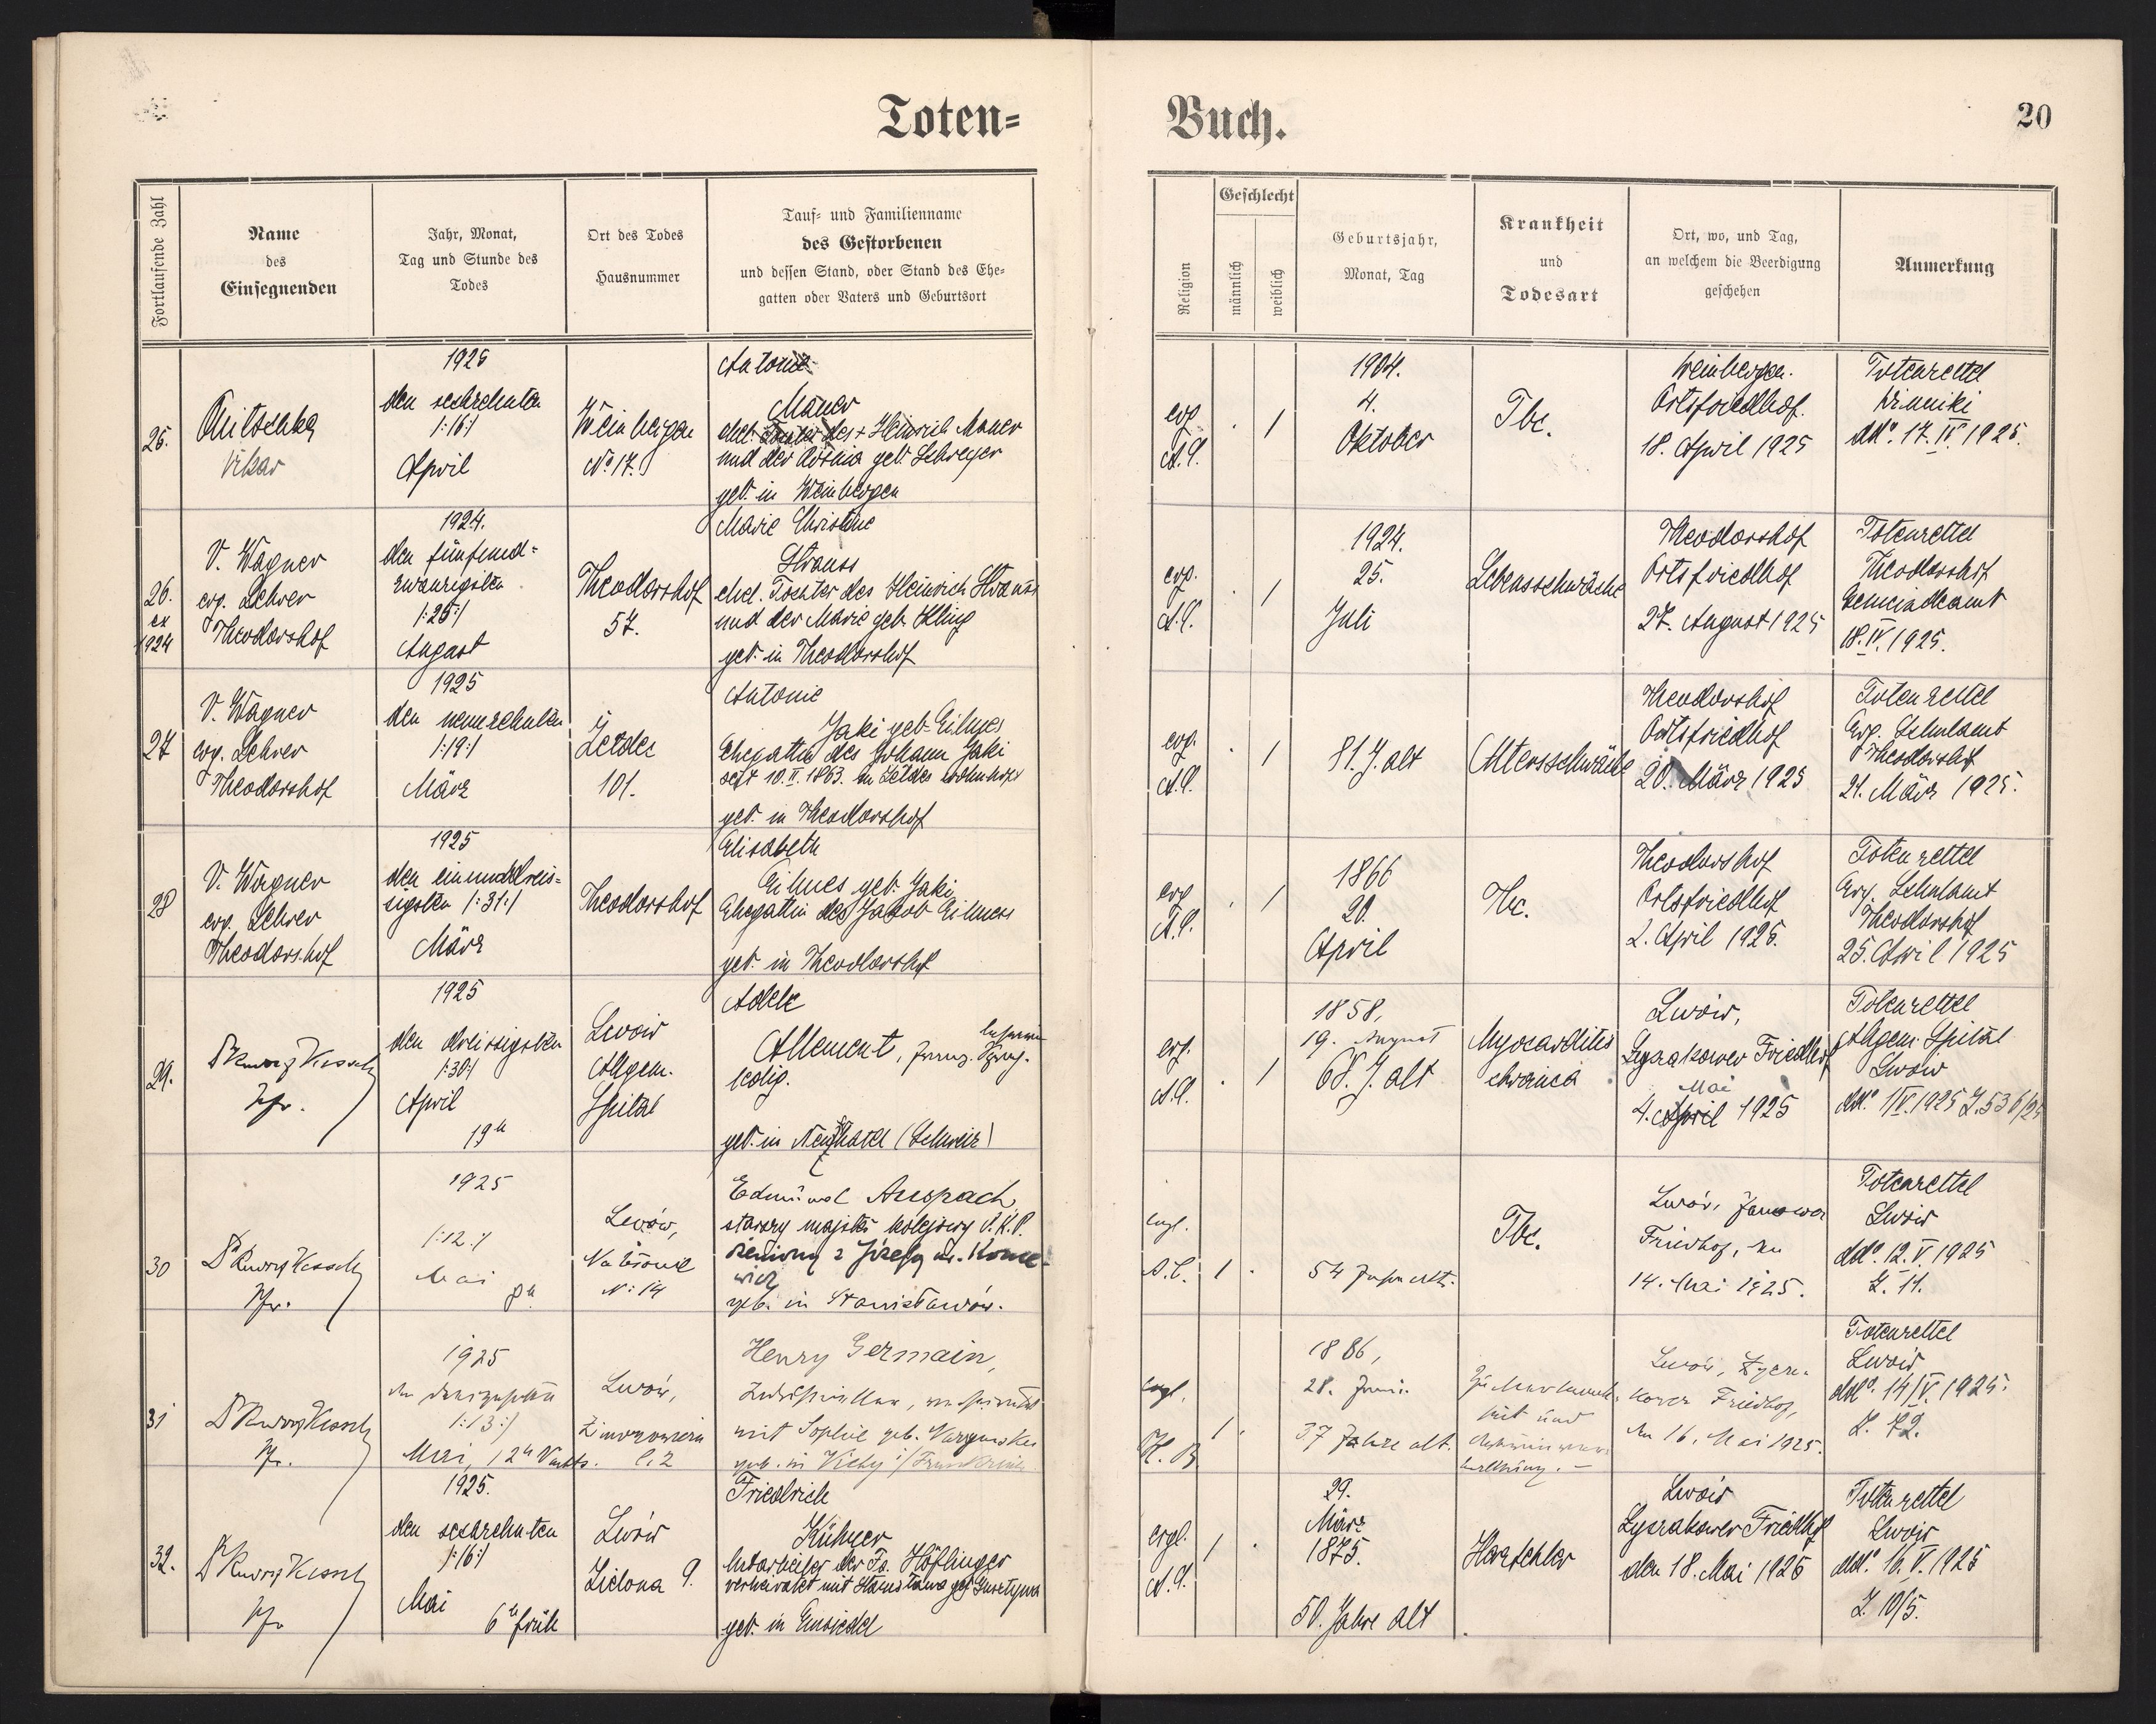 Toten=
Buch.
20
Fortlaufende Zahl
Name
des
Einsegnenden
Jahr, Monat,
Tag und Stunde des
Todes
Ort des Todes
Hausnummer
Tauf- und Familienname
des Gestorbenen
und dessen Stand, oder Stand des Ehe-
gatten oder Vaters und Geburtsort
Religion
Geschlecht
männlich
weiblich
Geburtsjahr,
Monat, Tag
Krankheit
und
Todesart
Ort, wo, und Tag,
an welchem die Beerdigung
geschehen
Anmerkung
25.
Vikar
1925
den sechzehnten
/:16:/
April
Weinbergen
No 17.
Antonie
Mauer
ehel. Tochter des + Heinrich Mauer
und der Rosina geb. Schreyer
geb. in Weinbergen
evg.
A.C.
1
1904.
4.
Oktober
Tbc.
Weinbergen
Ortsfriedhof.
18. April 1925
Totenzettel
Winniki
ddo. 17. IV 1925.
26.
ex
1924
V. Wagner
evg. Lehrer
Theodorshof
1924.
den fünfund=
zwanzigsten
/:25:/
August
Theodorshof
57.
Marie Christine
Strauss
ehel. Tochter des Heinrich Strauss
und der Marie geb. Kling
geb. in Theodorshof
evg.
A.C.
1
1924.
25.
Juli
Lebensschwäche
Theodorshof
Ortsfriedhof
27. August 1925
Totenzettel
Theodorshof
Gemeindeamt
18. IV. 1925.
27
V. Wagner
evg. Lehrer
Theodorshof
1925
den neunzehnten
/:19:/
März
Żeldec
101.
Antonie
Jaki geb. Eilmes
Ehegattin des Johann Jaki
seit 10. II. 1863. in Żeldec wohnhaft
geb. in Theodorshof
evg.
A.C.
1
81. J. alt
Altersschwäche
Theodorshof
Ortsfriedhof
20. März 1925
Totenzettel
Evg. Schulamt
Theodorshof
21. März 1925.
28
V. Wagner
evg. Lehrer
Theodorshof
1925
den einunddreis=
sigsten /:31:/
März
Theodorshof
Elisabeth
Eilmes geb. Jaki
Ehegattin des Jakob Eilmes
geb. in Theodorshof
evg.
A.C.
1
1866
20.
April
Tbc.
Theodorshof
Ortsfriedhof
2. April 1925.
Totenzettel
Evg. Schulamt
Theodorshof
25. April 1925
29.
Dr Kesselring
Pfr.
1925
den dreissigsten
/:30:/
April
19h
Lwów
Allgem.
Spital
Adele
Allement, franz. Sprach-
lehrerin
ledig.
geb. in Neufchatel (Schweiz)
evg.
A.C.
1
1858,
19. August
68. J. alt
Myocarditis
chronica
Lwów,
Łyczakower Friedhof
Mai
4. April 1925
Totenzettel
Allgem. Spital
Lwów
ddo. 1/V. 1925 Z. 536/25
30
Dr Kesselring
Pfr.
1925
/:12:/
Mai
Lwów,
Na Błonie
No: 14
Edmund Anspach,
starszy majster kolejowy P.K.P.
geb. in Stanisławów.
evgl.
A.C.
1
54 Jahre alt.
Tbc.
Lwów, Janower
Friedhof, den
14. Mai 1925.
Totenzettel
Lwów
ddo. 12. V. 1925
Z. 11.
31
Dr Kesselring
Pfr.
1925
den dreizehnten
/:13:/
Mai, 12h Nachts.
Lwów,
Zimorowicza
l. 2
Henry Germain,
Industrieller, verheiratet
mit Sophie geb.
geb. in Vichy /Frankreich
evgl.
H. B.
1
1886,
28. Juni.
37 Jahre alt.
Lwów, Łycza-
kower Friedhof,
den 16. Mai 1925.
Totenzettel
Lwów
ddo. 14/V. 1925.
Z. 72.
32.
Dr Kesselring
Pfr
1925.
den sechzehnten
/:16:/
Mai
6h früh
Lwów
Zielona 9.
Friedrich
Kühner
Mitarbeiter der Fa. Höflinger
verheiratet mit Stanisława geb.
geb. in Einsiedel
evgl.
A.C.
1
29.
März
1875.
50. Jahre alt
Herzfehler
Lwów
Łyczakower Friedhof
den 18. Mai 1925
Totenzettel
Lwów
ddo. 16. V. 1925
Z. 10/5.